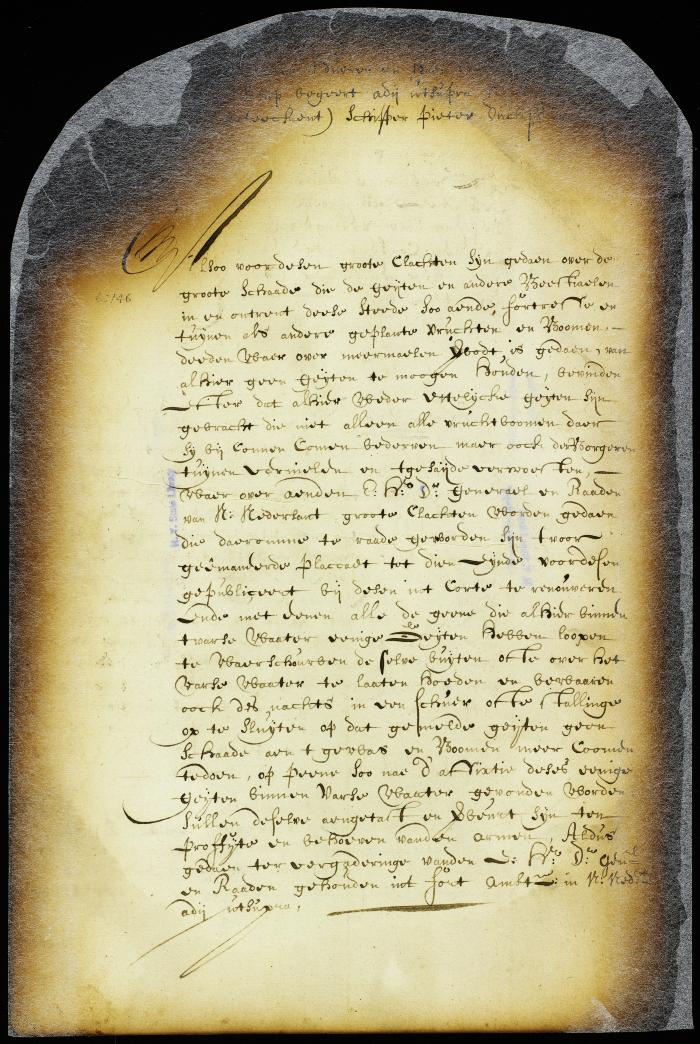 begeert adij utsupra
Schipper pieter
Alsoo voor desen groote Clachten sijn gedaen over de
groote Schaade die de geijten en andere Beestiaelen
in en ontrent deese Steede soo aende fortresse en
tuijnen als andere geplante vruchten en Boomen
deeden Waer over meermaelen is gedaen, van
alhier geen geijten te moogen houden, bevinden
Echter dat alhier Weder ettelijcke geijten sijn
gebracht die niet alleen alle vruchtboomen daer
sij bij Connen Comen bederven maer oock der Borgeren
tuijnen vernielen en tgesaijde verwoesten,
Waer over aenden E: Hr Dr Generael en Raaden
van N: Nederlant groote Clachten Worden gedaen
die daeromme te raade geworden sijn tvoor
geEmaneerde placcaet tot dien Eijnde voordesen
gepubliceert bij desen int Corte te renouveren
Ende met eenen alle de geene die alhier binnen
tvarse Waater eenige Geijten hebben loopen
te Waerschouwen de selve buijten ofte over het
varse Waater te laaten hoeden en bewaaren
oock des nachts in een schuer ofte stallinge
op te sluijten op dat gemelde geijten geen
Schaade aen t gewas en Boomen meer Coomen
tedoen, op peene soo nae d'affixtie deses eenige
Geijten binnen varse Waater gevonden Worden
sullen deselve aengetast en verbeurt sijn ten
proffijte en behoeven vanden armen, Aldus
gedaen ter vergaderinge vanden E: Hr Dr Genl
en Raaden gehouden int fort Amstr: in N: Nedlt
adij utsupra,
N.Y. State Library